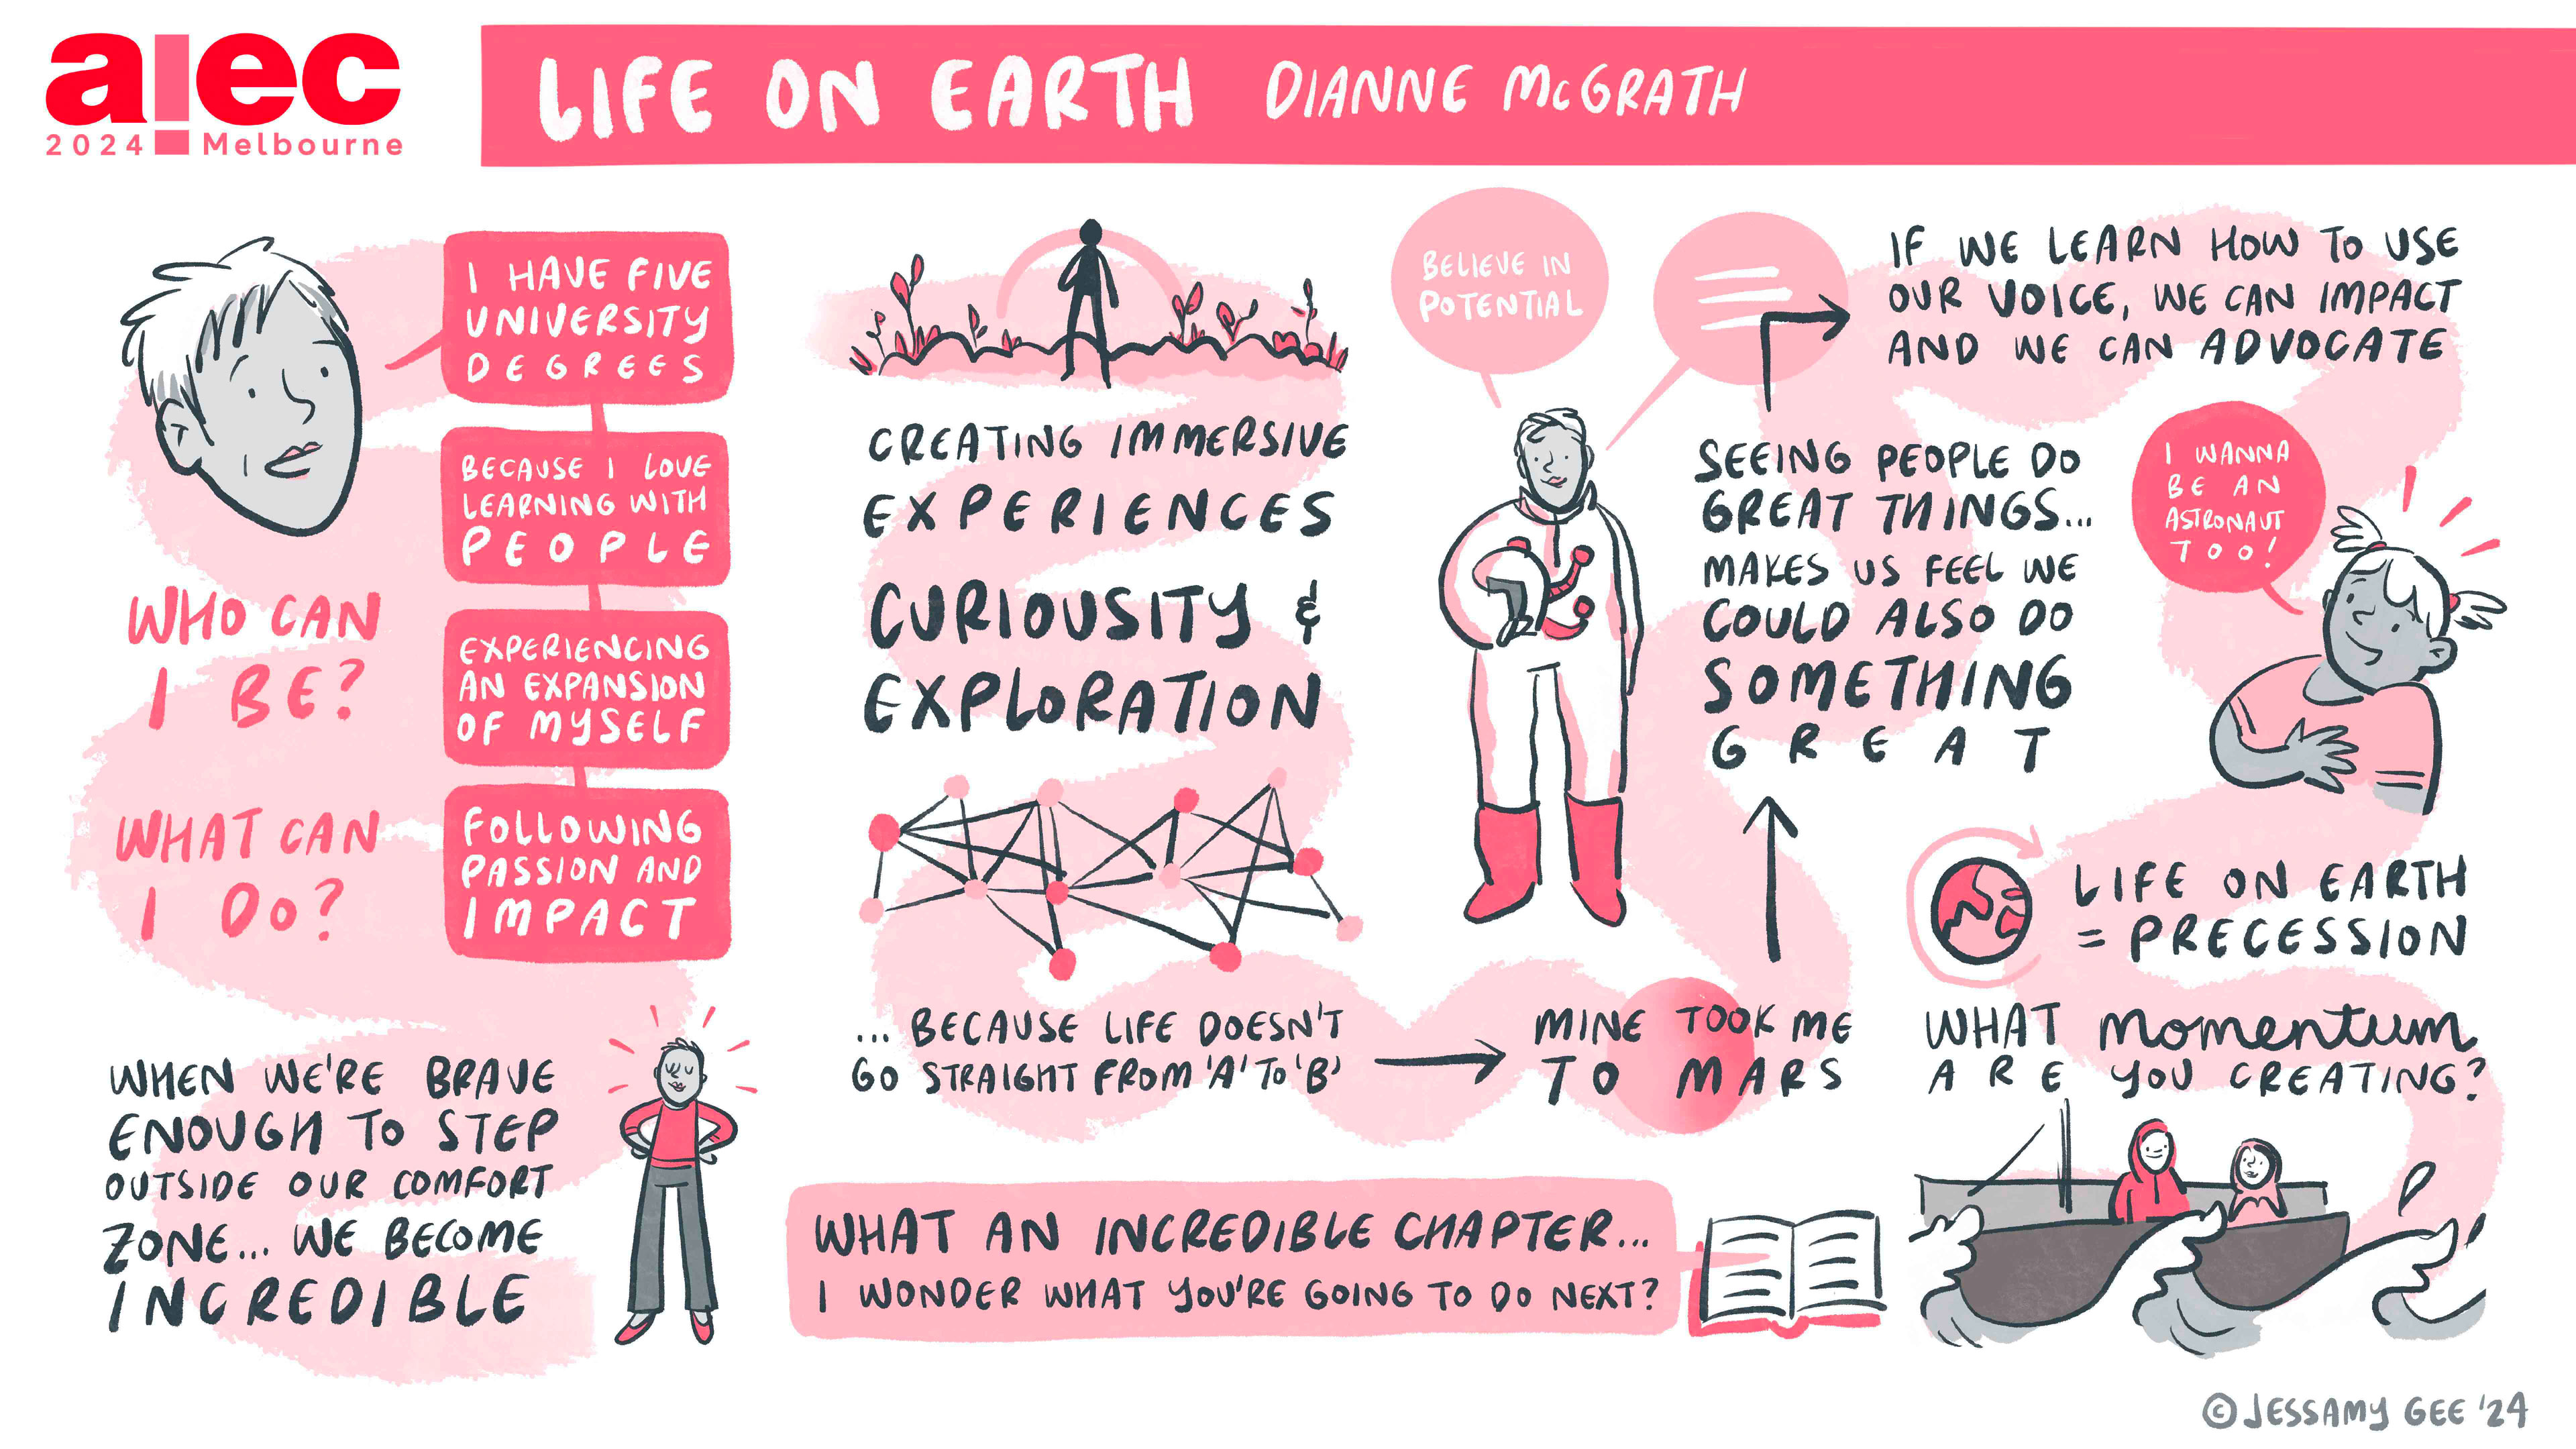 a!ec
2024 Melbourne
LIFE ON EARTH DIANNE McGRATH
I HAVE FIVE
UNIVERSITY
DEGREES
BECAUSE I LOVE
LEARNING WITH
PEOPLE
EXPERIENCING
AN EXPANSION
OF MYSELF
FOLLOWING
PASSION AND
IMPACT
WHO CAN
I BE?
WHAT CAN
I DO?
WHEN WE'RE BRAVE
ENOUGH TO STEP
OUTSIDE OUR COMFORT
ZONE... WE BECOME
INCREDIBLE
CREATING IMMERSIVE
EXPERIENCES
CURIOUSITY &
EXPLORATION
... BECAUSE LIFE DOESN'T
GO STRAIGHT FROM 'A' TO 'B'
MINE TOOK ME
TO MARS
BELIEVE IN
POTENTIAL
SEEING PEOPLE DO
GREAT THINGS...
MAKES US FEEL WE
COULD ALSO DO
SOMETHING
GREAT
IF WE LEARN HOW TO USE
OUR VOICE, WE CAN IMPACT
AND WE CAN ADVOCATE
I WANNA
BE AN
ASTRONAUT
TOO!
LIFE ON EARTH
= PRECESSION
WHAT momentum
ARE YOU CREATING?
WHAT AN INCREDIBLE CHAPTER...
I WONDER WHAT YOU'RE GOING TO DO NEXT?
© JESSAMY GEE '24